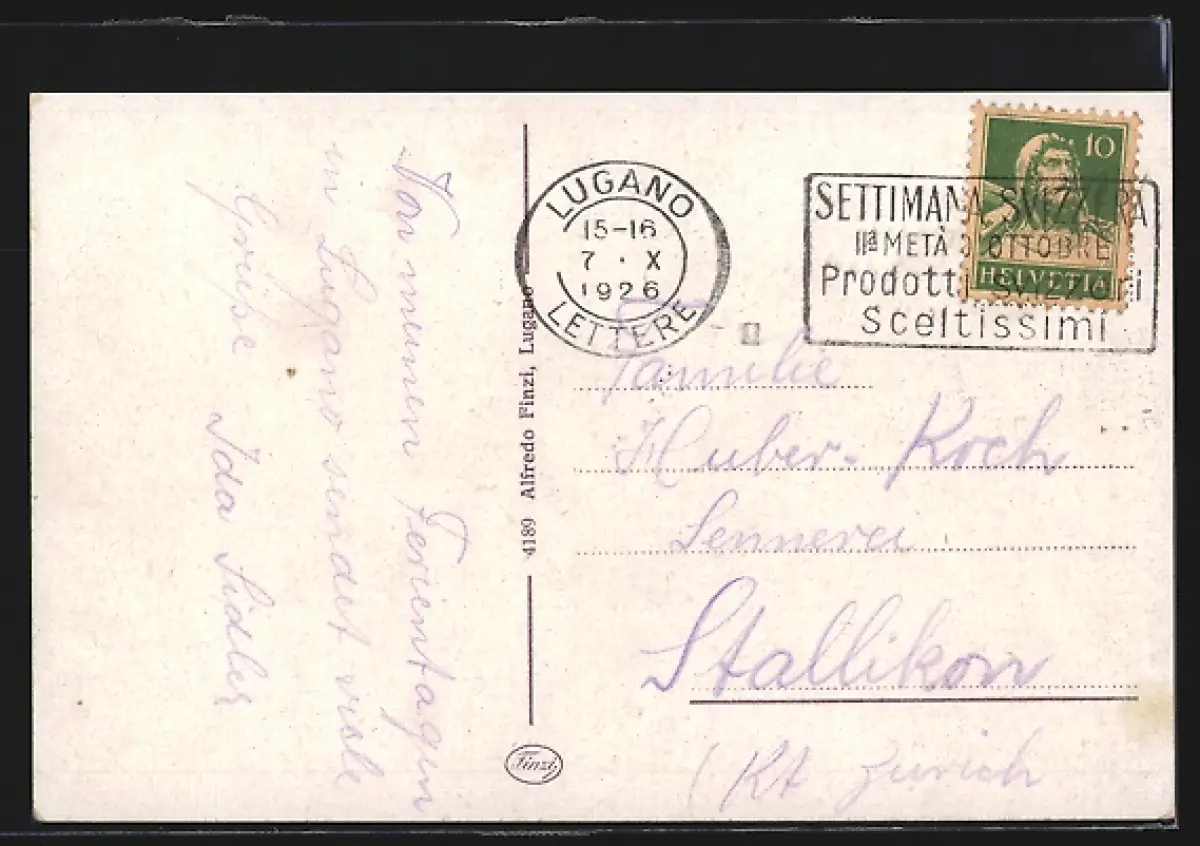 Von meinen Ferientagen
in Lugano sendet viele
Grüße Ida Sidler
4189 Alfredo Finzi, Lugano
Finzi
LUGANO
15-16
7 · X
1926
LETTERE
10
HELVETIA
SETTIMANA SVIZZERA
IIª METÀ D'OTTOBRE
Prodotti Svizzeri
Sceltissimi
Familie
Huber-Koch
Sennerei
Stallikon
(Kt Zürich